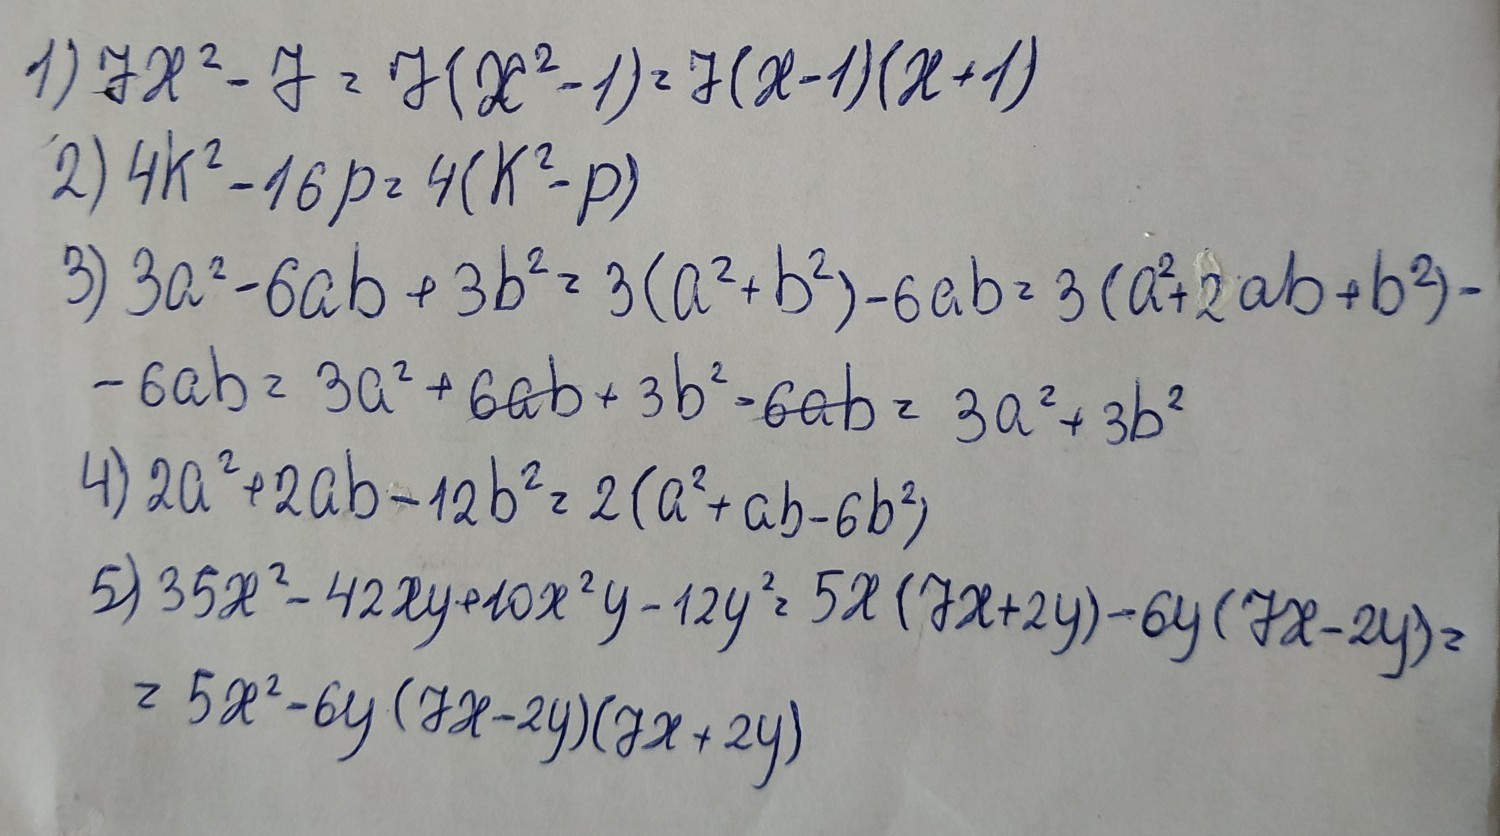 1) 7x² - 7 = 7(x² - 1) = 7(x - 1)(x + 1)
2) 4k² - 16p = 4(k² - p)
3) 3a² - 6ab + 3b² = 3(a² + b²) - 6ab = 3(a² + 2ab + b²) -
- 6ab = 3a² + 6ab + 3b² - 6ab = 3a² + 3b²
4) 2a² + 2ab - 12b² = 2(a² + ab - 6b²)
5) 35x² - 42xy + 10x²y - 12y² = 5x(7x + 2y) - 6y(7x - 2y) =
= 5x² - 6y(7x - 2y)(7x + 2y)